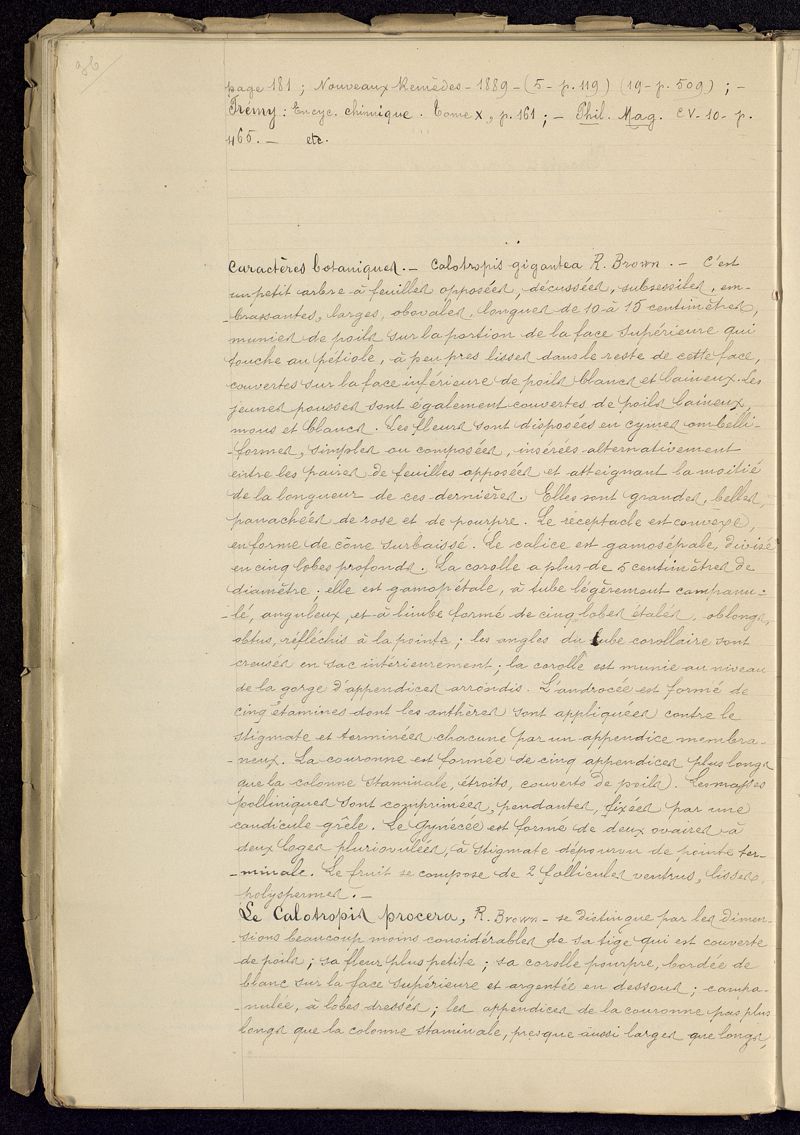 page 181 ; Nouveaux Remèdes - 1889 - (5 - p. 119) (19 - p. 509) ; -
Frémy : Encyc. chimique. Tome X, p. 161 ; - Phil. Mag. CV - 10 - p.
465. - etc.
Caractères botaniques. - Calotropis gigantea R. Brown. - C'est
un petit arbre à feuilles opposées, décussées, subsessiles, em-
-brassantes, larges, obovales, longues de 10 à 15 centimètres,
munies de poils sur la portion de la face supérieure qui
touche au pétiole, à peu près lisses dans le reste de cette face,
couvertes sur la face inférieure de poils blancs et laineux. Les
jeunes pousses sont également couvertes de poils laineux,
mous et blancs. Les fleurs sont disposées en cymes ombelli-
-formes, simples ou composées, insérées alternativement
entre les paires de feuilles opposées et atteignant la moitié
de la longueur de ces dernières. Elles sont grandes, belles,
panachées de rose et de pourpre. Le réceptacle est convexe,
en forme de cône surbaissé. Le calice est gamosépale, divisé
en cinq lobes profonds. La corolle a plus de 5 centimètres de
diamètre ; elle est gamopétale, à tube légèrement campanu-
-lé, anguleux, et à limbe formé de cinq lobes étalés, oblongs,
obtus, réfléchis à la pointe ; les angles du tube corollaire sont
creusés en sac intérieurement ; la corolle est munie au niveau
de la gorge d'appendices arrondis. L'androcée est formé de
cinq étamines dont les anthères sont appliquées contre le
stigmate et terminées chacune par un appendice membra-
-neux. La couronne est formée de cinq appendices plus longs
que la colonne staminale, étroits, couverts de poils. Les masses
polliniques sont comprimées, pendantes, fixées par une
caudicule grêle. Le gynécée est formé de deux ovaires à
deux loges pluriovulées, à stigmate dépourvu de pointe ter-
-minale. Le fruit se compose de 2 follicules ventrus, lisses,
polyspermes. -
Le Calotropis procera, R. Brown - se distingue par les dimen-
-sions beaucoup moins considérables de sa tige qui est couverte
de poils ; sa fleur plus petite ; sa corolle pourpre, bordée de
blanc sur la face supérieure et argentée en dessous ; campa-
-nulée, à lobes dressés ; les appendices de la couronne pas plus
longs que la colonne staminale, presque aussi larges que longs,